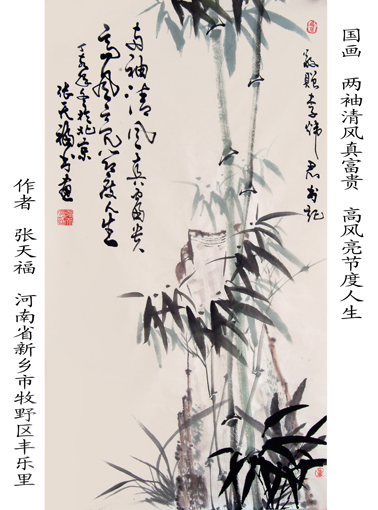 国画　两袖清风真富贵　高风亮节度人生
敬赠李炜君书记
两袖清风真富贵
高风亮节度人生
丁亥年冬於北京
张天福书画
作者　张天福　河南省新乡市牧野区丰乐里